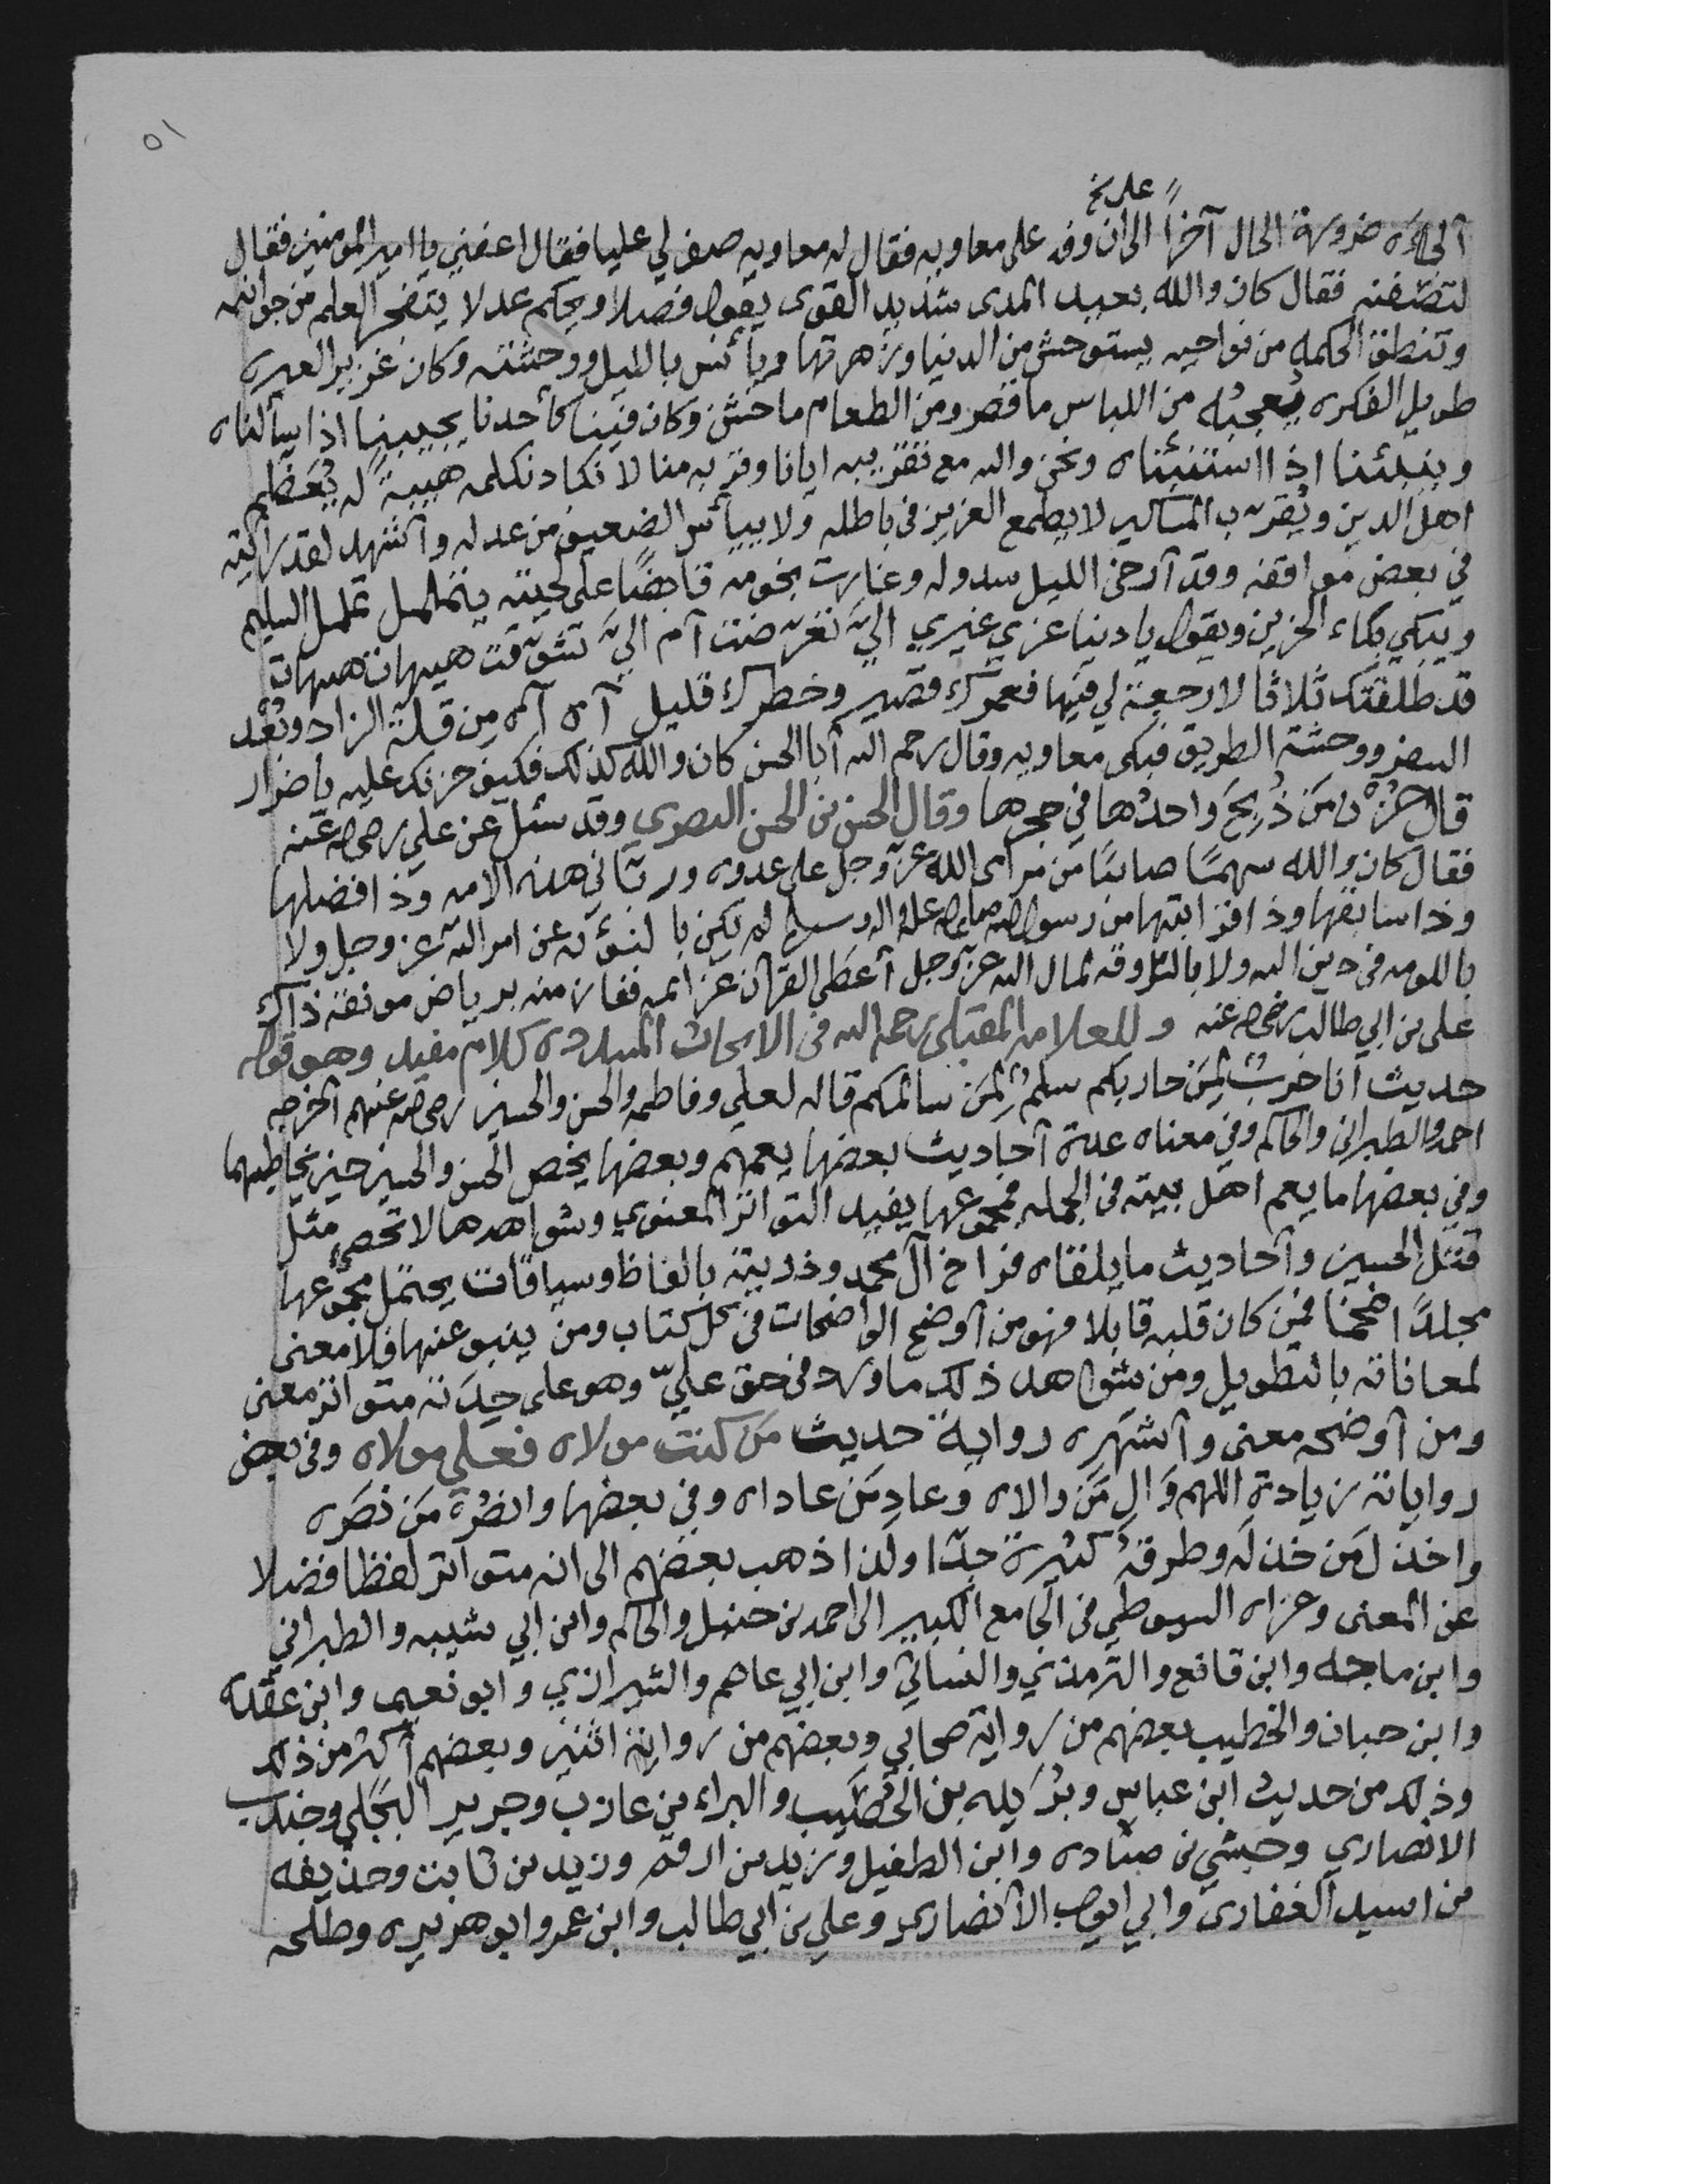 ٥١
على خ
ألجأه ضرورة الحال آخرا الى ان وفد على معاويه فقال له معاويه صف لي عليا فقال اعفني يا امير المومنين فقال
لتصفنه فقال كان والله بعيد المدى شديد القوى يقول فصلا ويحكم عدلا يتفجر العلم من جوانبه
وتنطق الحكمه من نواحيه يستوحش من الدنيا وزهرتها ويأنس بالليل ووحشته وكان غزير العبره
طويل الفكره يُعجبُه من اللباس ما قصر ومن الطعام ما خشن وكان فينا كأحدنا يجيبنا اذا سألناه
وينبئنا اذا استنبئناه ونحن والله مع تقريبه ايانا وقربه منا لا نكاد نكلمه هيبةً له يُعَظِّم
اهل الدين ويُقرّب المساكين لا يطمع العزيز في باطله ولا ييأس الضعيف من عدله وأشهد لقد رأيته
في بعض مواقفه وقد أرخى الليل سدوله وغارت نجومه قابضًا على لحيته يتململ تململ السليم
ويبكي بكاء الحزين ويقول يا دنيا غري غيري اليَّ تعرّضت أم اليَّ تشوّقت هيهات هيهات
قد طلقتك ثلاثا لا رجعة لي فيها فعمرك قصير وخطرك قليل آه آه مِن قلة الزاد وبُعْد
السفر ووحشة الطريق فبكى معاويه وقال رحم الله أبا الحسن كان والله كذلك فكيف حزنك عليه يا ضرار
قال حزن من ذُبِحَ واحدُها في حجرها وقال الحسن بن الحسن البصري وقد سئل عن علي رضي الله عنه
فقال كان والله سهمًا صائبًا من مرامى الله عزّ وجل على عدوه وربّاني هذه الامه وذا فضلها
وذا سابقتها وذا قرابتها من رسول الله صلى الله عليه واله وسلم لم يكن بالنؤمه عن امر الله عز وجل ولا
بالملومه في دين الله ولا بالسروقه لمال الله عزّ وجل أعطى القرآن عزائمه ففاز منه برياض مونقه ذاك
علي بن ابي طالب رضي الله عنه وللعلامه المقبلي رحمه الله في الابحاث المسدده كلام مفيد وهو قوله
حديث أنا حربٌ لِمَن حاربكم سلمٌ لِمَن سالمكم قاله لعلي وفاطمه والحسن والحسين رضي الله عنهم أخرجه
احمد والطبراني والحاكم وفي معناه عدة أحاديث بعضها يعمهم وبعضها يخص الحسن والحسين حين يخاطبهما
وفي بعضها ما يعم اهل بيته في الجمله فمجموعها يفيد التواتر المعنوي وشواهدها لا تحصى مثل
قتل الحسين وأحاديث ما يلقاه فراخ آل محمد وذريته بالفاظ وسياقات يحتمل مجموعها
مجلدًا ضخما فمن كان قلبه قابلا فهو من أوضح الواضحات في كل كتاب ومن ينبو عنها فلا معنى
لمعاناته بالتطويل ومن شواهد ذلك ما ورد في حق عليّ وهو على حِدَته متواتر معنى
ومن أوضحه معنى وأشهره رواية حديث مَن كنت مولاه فعلي مولاه وفي بعض
رواياته زيادة اللهم وَالِ مَن والاه وعادِ مَن عاداه وفي بعضها وانصُرْ مَن نصَره
واخذل مَن خذله وطرقه كثيرة جدّا ولذا ذهب بعضهم الى انه متواتر لفظا فضلا
عن المعنى وعزاه السيوطي في الجامع الكبير الى احمد بن حنبل والحاكم وابن ابي شيبه والطبراني
وابن ماجه وابن قانع والترمذي والنسائي وابن ابي عاصم والشيرازي وابو نعيم وابن عقده
وابن حبان والخطيب بعضهم من رواية صحابي وبعضهم من رواية اثنين وبعضهم أكثر من ذلك
وذلك من حديث ابن عباس وبُرَيده بن الحُصَيب والبراء بن عازب وجرير البَجلي وجندب
الانصاري وحبشي بن جناده وابن الطفيل وزيد بن ارقم وزيد بن ثابت وحذيفه
من اسيد الغفاري وابي ايوب الأنصاري وعلي بن ابي طالب وابن عمر وابو هريره وطلحه